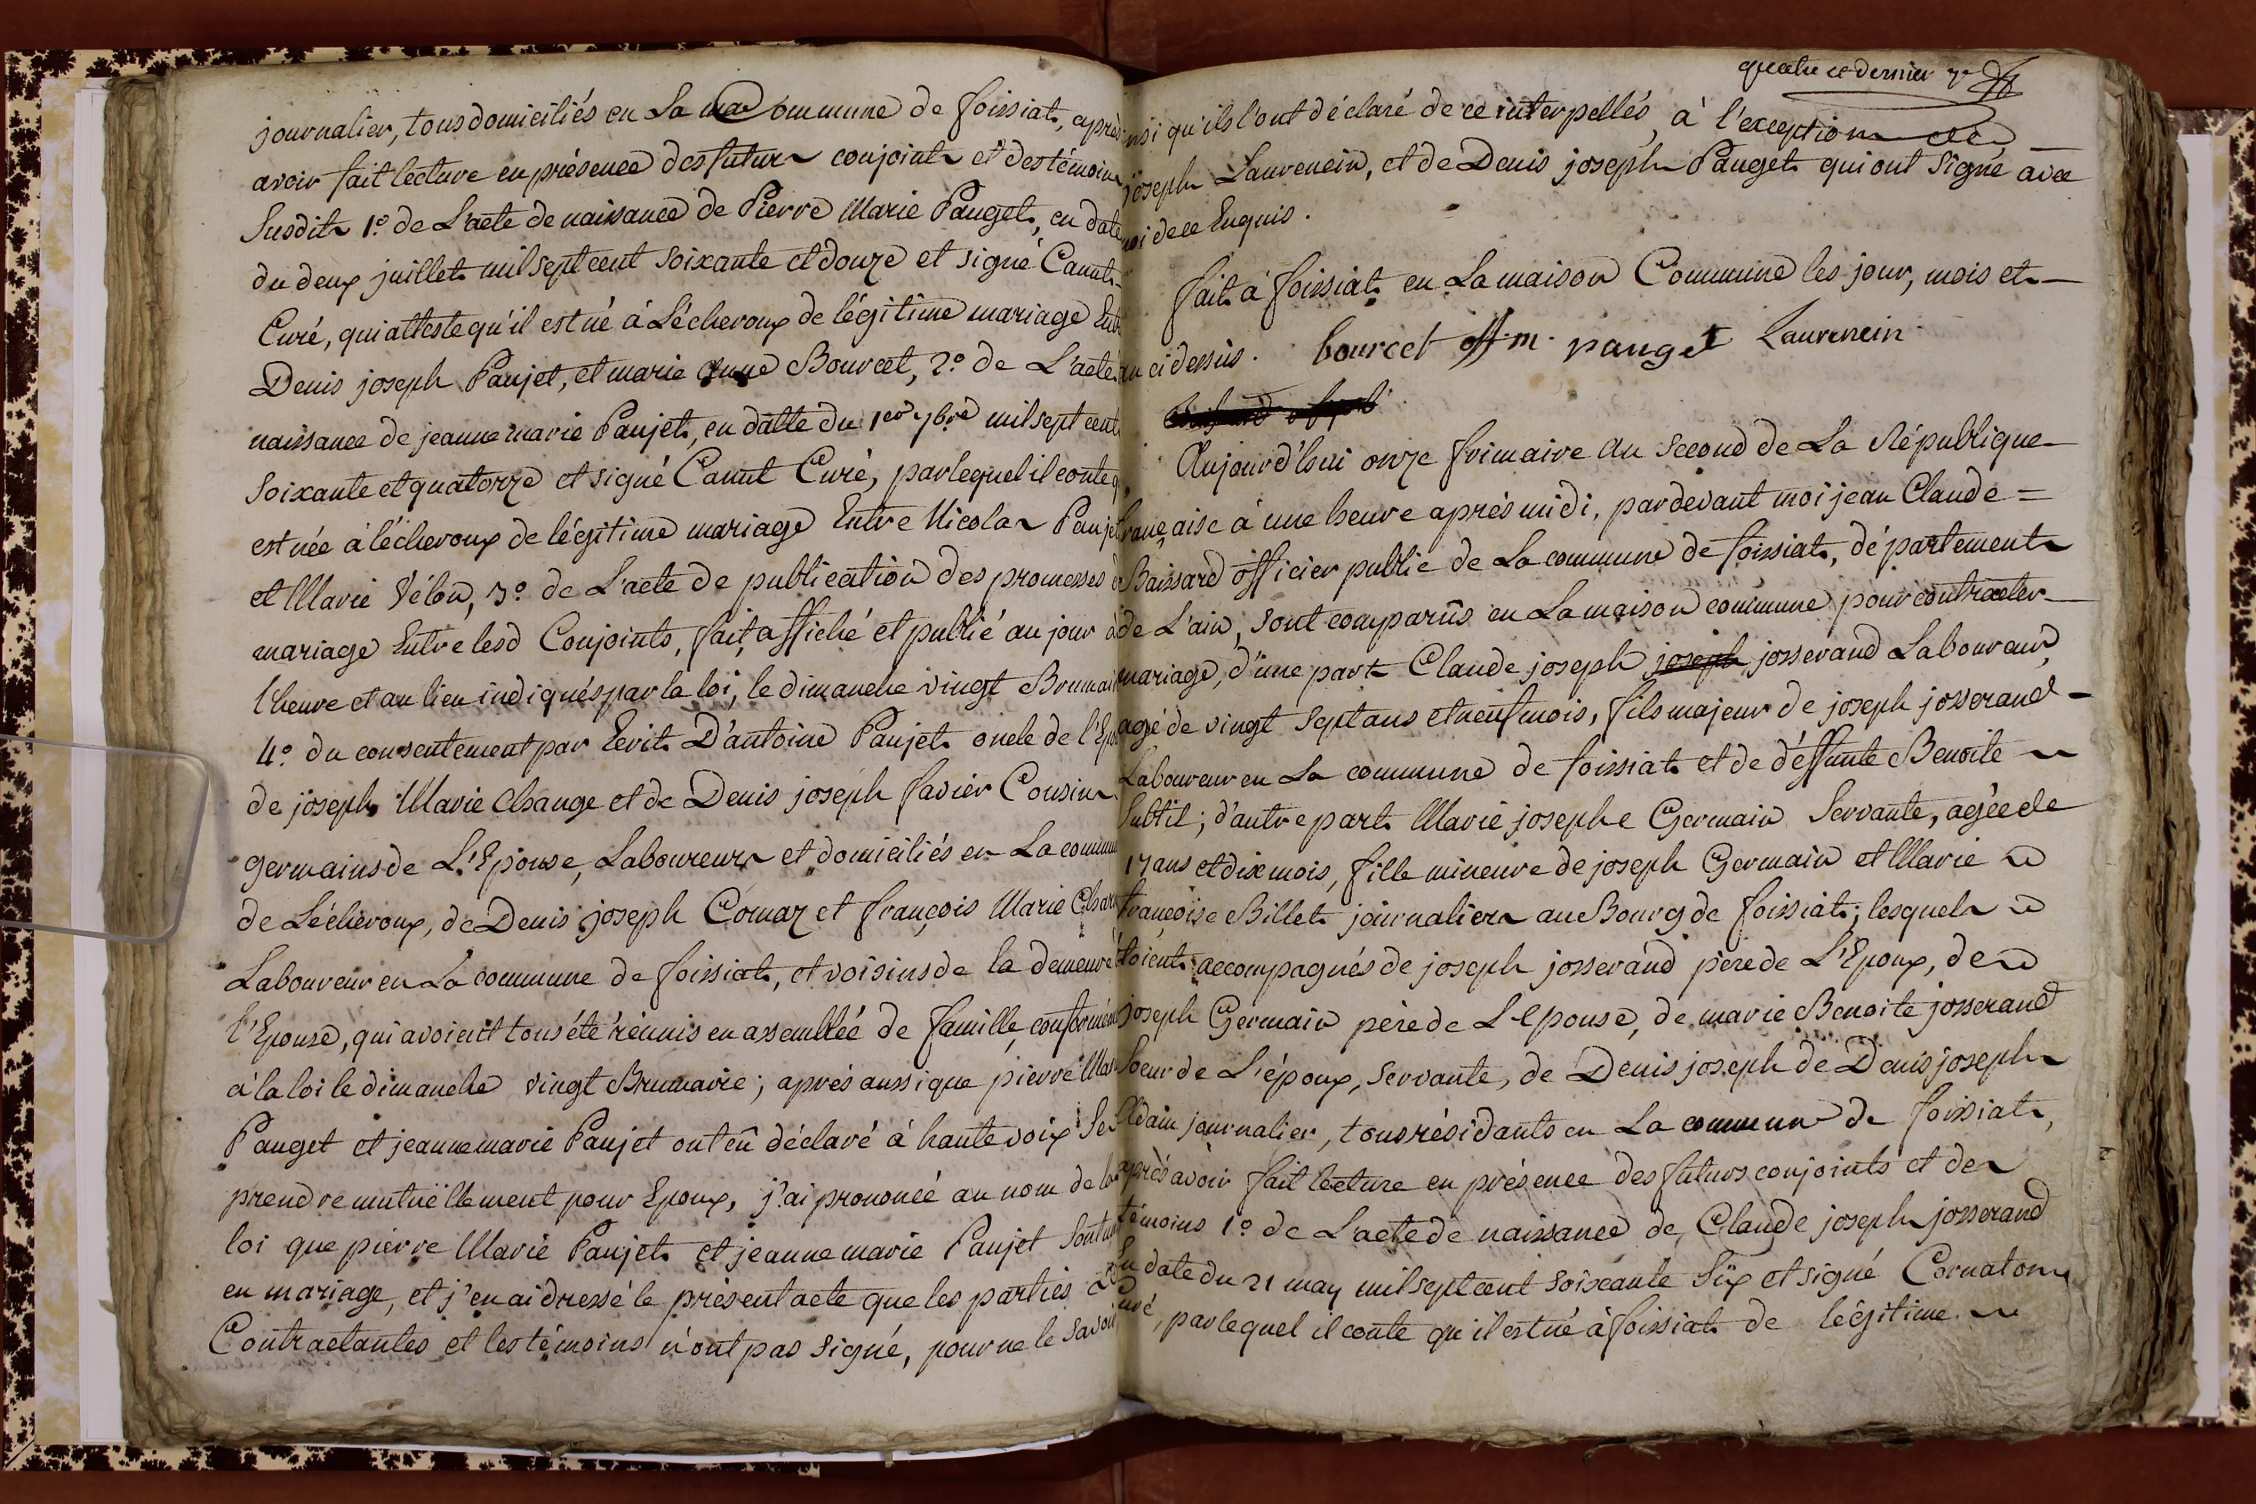 journalier, tous domiciliés en La Commune de foissiat, après
avoir fait lecture en présence des futurs conjoints et des témoins
Susdits 1.º de L'acte de naissance de Pierre Marie Pauget, en date
du deux juillet mil sept cent soixante et douze et signé Canut
Curé, qui atteste qu'il est né à Lécheroux de légitime mariage Entre
Denis joseph Paujet, et marie Anne Bourcet, 2.º de L'acte de
naissance de jeanne marie Paujet, en datte du 1er 7bre mil sept cent
soixante et quatorze et signé Canut Curé, par lequel il conte q
est née à lécheroux de légitime mariage Entre Nicolas Paujet
et Marie Vélon, 3.º de L'acte de publication des promesses de
mariage Entre lesd Conjoints, fait, affiché et publié au jour à
l'heure et au lieu indiqués par la loi, le dimanche vingt Brumaire
4.º du consentement par Ecrit D'antoine Paujet oncle de l'Epouse
de joseph Marie Change et de Denis joseph favier Cousins
germains de L'Epouse, Laboureurs et domiciliés en La commune
de Lécheroux, de Denis joseph Comaz et françois Marie Chan
Laboureur en La commune de foissiat, et voisins de la demeure
l'Epouse, qui avoient tous été réunis en assemblée de famille, conformément
à la loi le dimanche vingt Brumaire; après aussi que pierre Marie
Pauget et jeanne marie Paujet ont eû déclaré à haute voix Se
prendre mutuëllement pour Epoux, j'ai prononcé au nom de la
loi que pierre Marie Paujet et jeanne marie Paujet Sont unis
en mariage, et j'en ai dressé le présent acte que les parties
Contractantes et les témoins n'ont pas signé, pour ne le savoir
quatre et dernier
nsi qu'ils l'ont déclaré de ce interpellés, à l'exception de
joseph Laurencin, et de Denis joseph Pauget qui ont signé avec
moi de ce Enquis.
fait à foissiat en La maison Commune les jour, mois et
an ci dessus. bourcet off. m. pauget Laurencin
Aujourd'hui onze frimaire an second de La République
française à une heure après midi, pardevant moi jean Claude =
Baissard officier public de La commune de foissiat, département
de L'ain, sont comparûs en La maison commune pour contracter
mariage, d'une part Claude joseph joseph josserand Laboureur,
agé de vingt sept ans et neuf mois, fils majeur de joseph josserand
Laboureur en La commune de foissiat et de déffunte Benoite
Subtil; d'autre part Marie josephe Germain Servante, agée de
17 ans et dix mois, fille mineure de joseph Germain et Marie
françoise Billet journaliers au Bourg de foissiat; lesquels
étoient accompagnés de joseph josserand père de L'Epoux, de
joseph Germain père de L'epouse, de marie Benoite josserand
Soeur de L'époux, servante, de Denis joseph de Denis joseph
Adam journalier, tous résidants en La commune de foissiat,
après avoir fait lecture en présence des futurs conjoints et des
témoins 1.º de L'acte de naissance de Claude joseph josserand
En date du 21 may mil sept cent soixante Six et signé Cornaton
Curé, par lequel il conte qu'il est né à foissiat de légitime